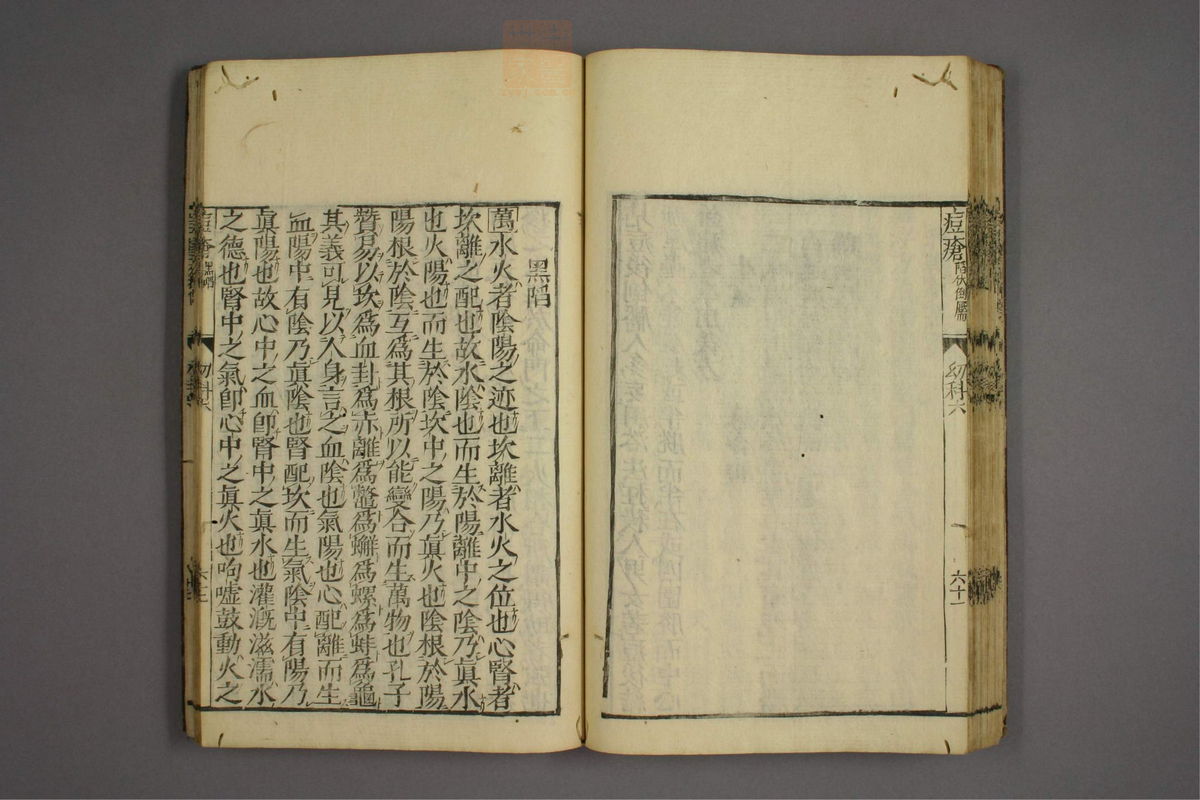 痘瘡 陷伏倒靨 幼科六 六十一
黑陷
萬水火者陰陽之迹也坎離者水火之位也心腎者
坎離之配也故水陰也而生於陽離中之陰乃眞水
也火陽也而生於陰坎中之陽乃眞火也陰根於陽
陽根於陰互爲其根所以能變合而生萬物也孔子
贊易以坎爲血卦爲赤離爲鼈爲蠏爲螺爲蚌爲龜
其義可見以人身言之血陰也氣陽也心配離而生
血陽中有陰乃眞陰也腎配坎而生氣陰中有陽乃
眞陽也故心中之血卽腎中之眞水也灌漑滋濡水
之德也腎中之氣卽心中之眞火也呴噓鼓動火之
痘瘡 黑陷 幼科六